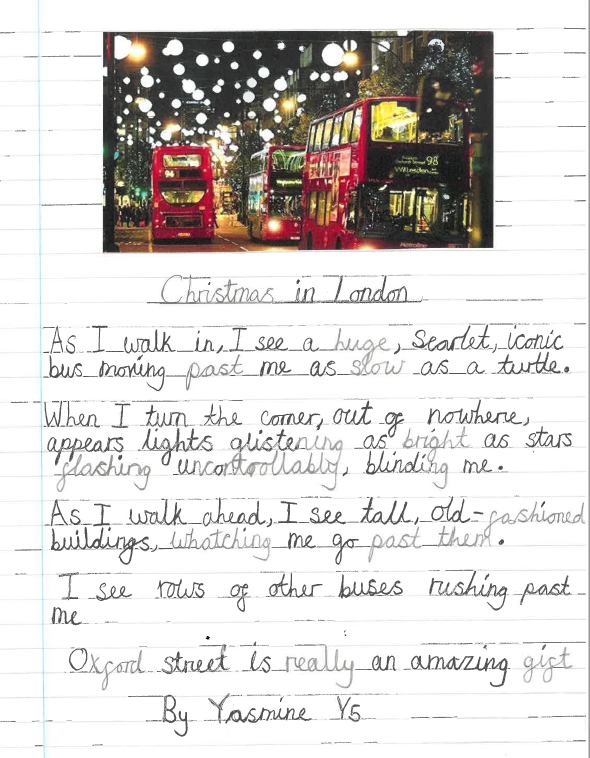 94
98
Christmas in London
As I walk in, I see a huge, scarlet, iconic
bus moving past me as slow as a turtle.
When I turn the corner, out of nowhere,
appears lights glistening as bright as stars
flashing uncontroollably, blinding me.
As I walk ahead, I see tall, old-fashioned
buildings, whatching me go past them.
I see rows of other buses rushing past
me
Oxford street is really an amazing gift
By Yasmine Y5